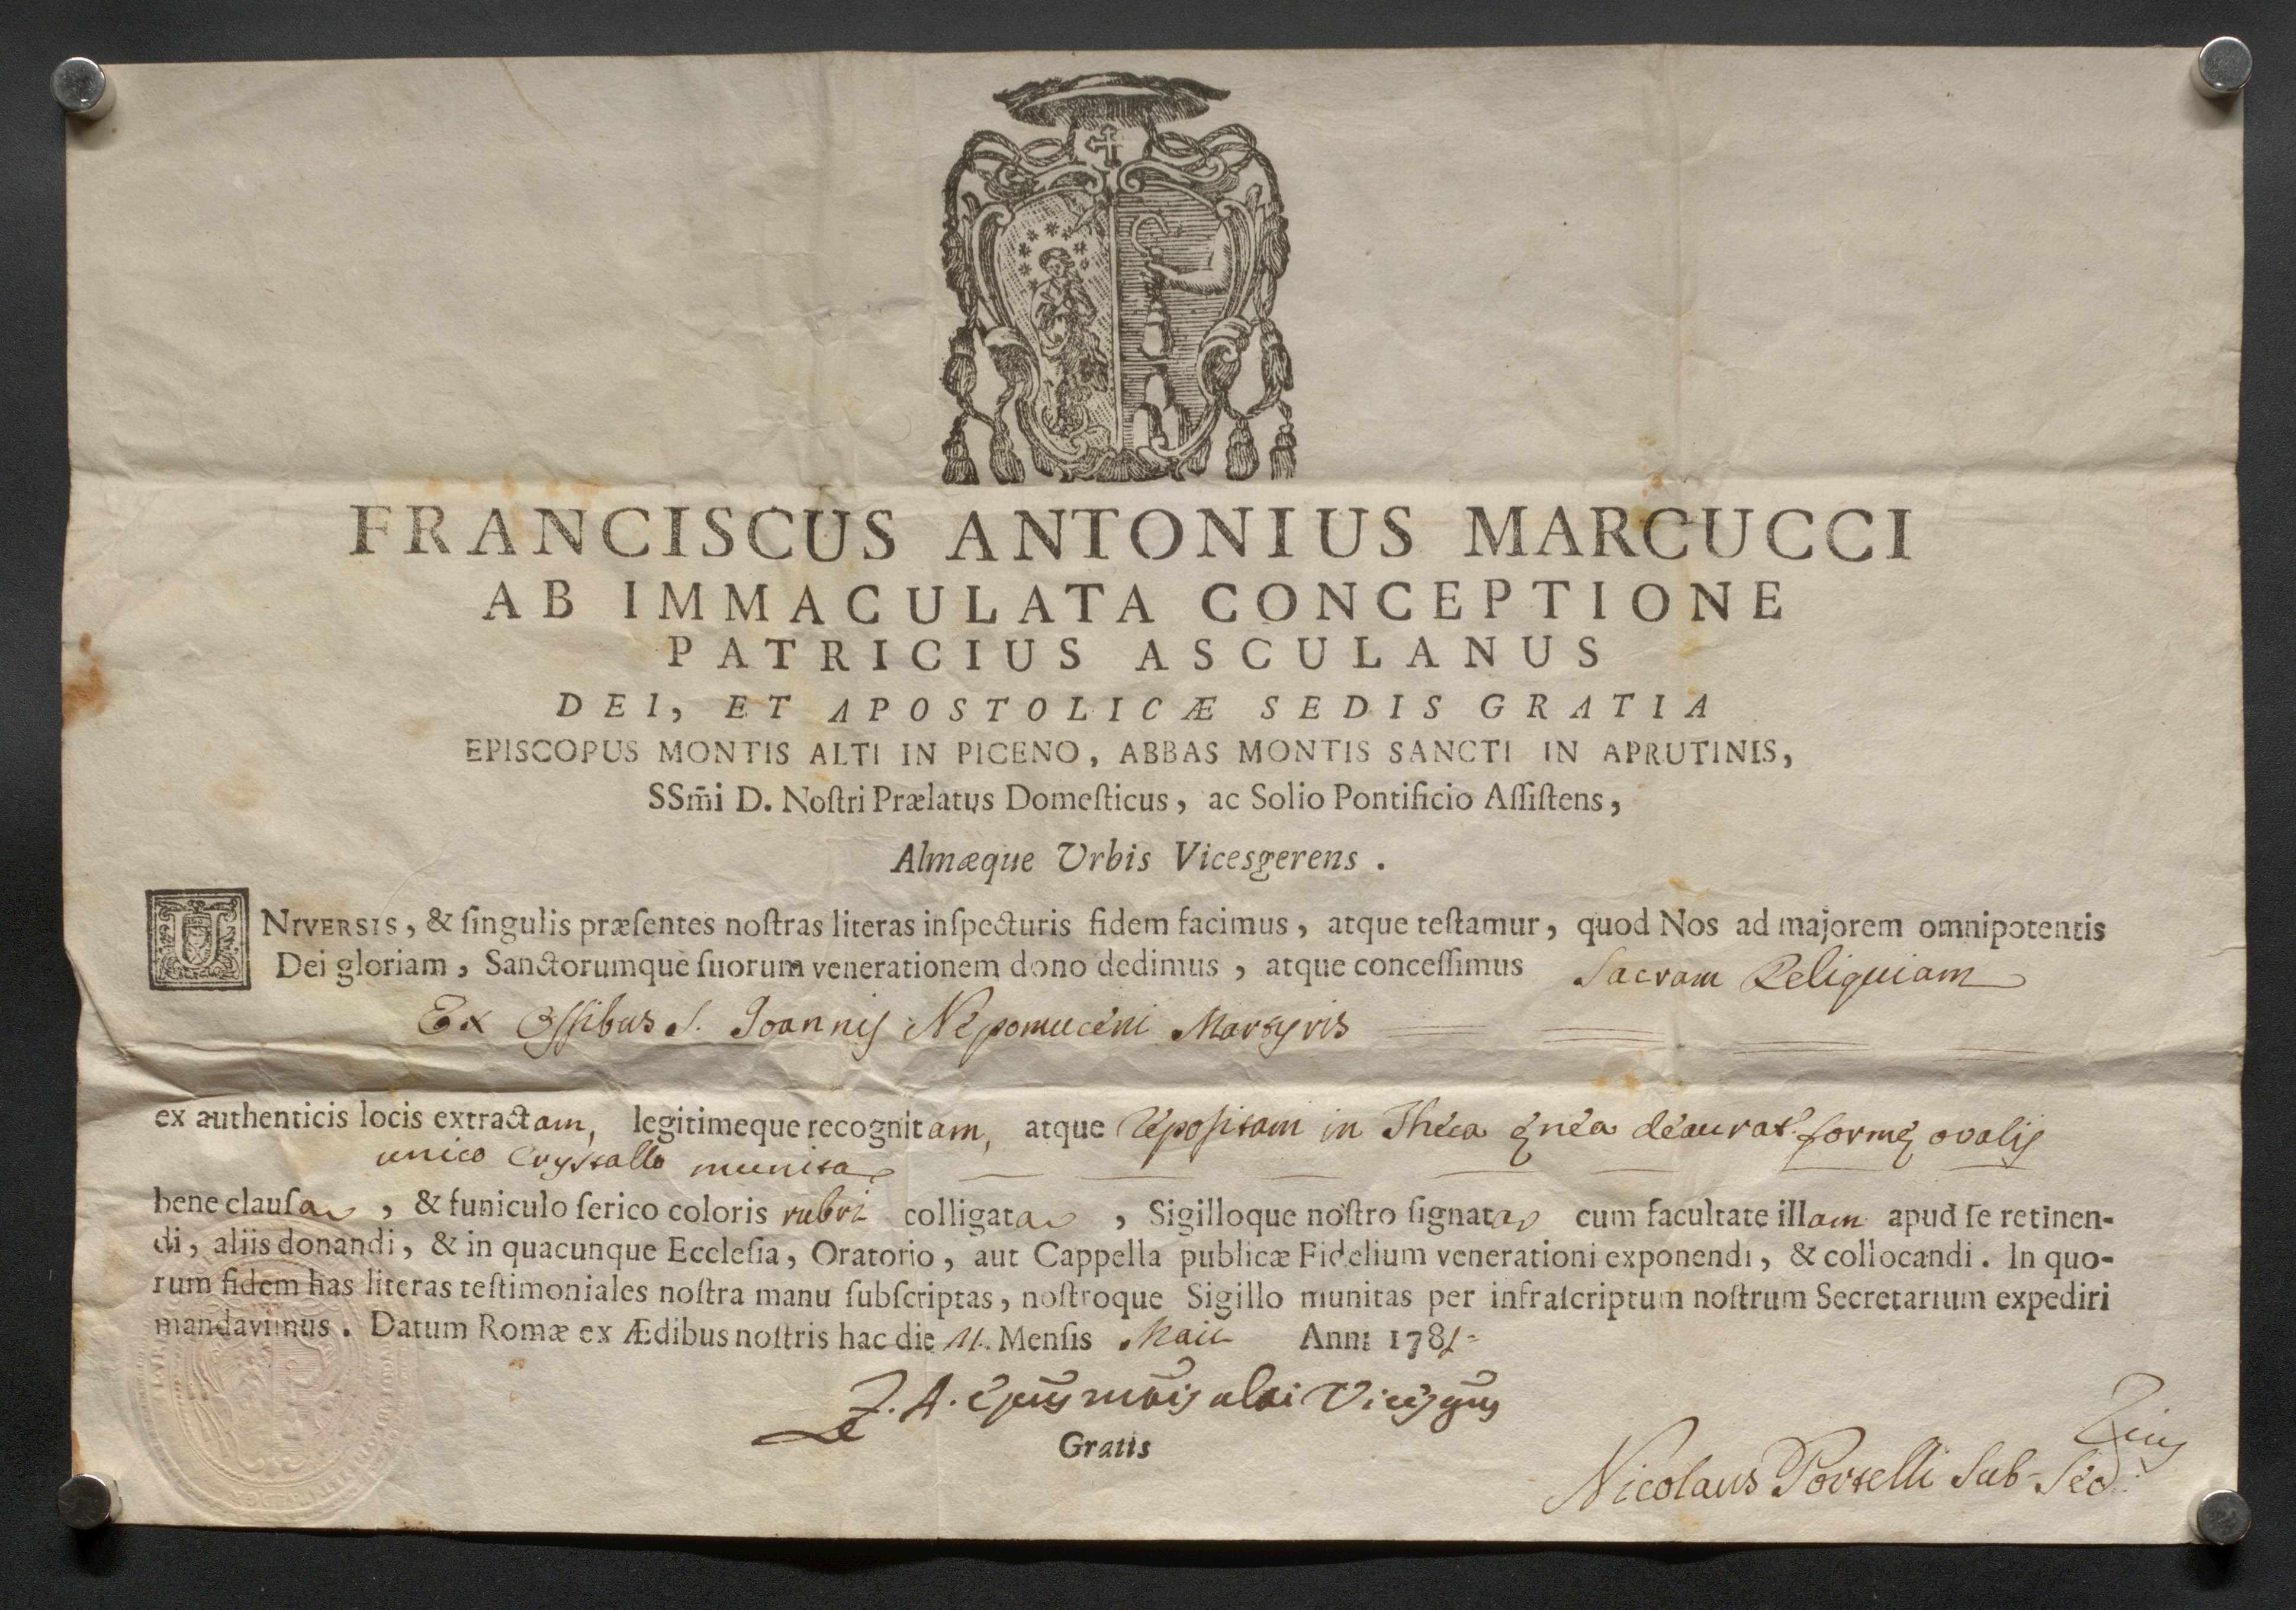 FRANCISCUS ANTONIUS MARCUCCI
AB IMMACULATA CONCEPTIONE
PATRICIUS ASCULANUS
DEI, ET APOSTOLICÆ SEDIS GRATIA
EPISCOPUS MONTIS ALTI IN PICENO, ABBAS MONTIS SANCTI IN APRUTINIS,
SSm̃i D. Noſtri Prælatus Domeſticus, ac Solio Pontificio Aſſiſtens,
Almæque Urbis Vicesgerens.
UNIVERSIS, & ſingulis præſentes noſtras literas inſpecturis fidem facimus, atque teſtamur, quod Nos ad majorem omnipotentis
Dei gloriam, Sanctorumque ſuorum venerationem dono dedimus, atque conceſſimus Sacram Reliquiam
Ex Oſſibus S. Joannis Nepomuceni Martyris
ex authenticis locis extractam, legitimeque recognitam, atque repoſitam in Theca ęnea deaurat. formę ovalis
unico Crystallo munita
bene clauſa, & funiculo ſerico coloris rubri colligata, Sigilloque noſtro ſignata cum facultate illam apud ſe retinen-
di, aliis donandi, & in quacunque Eccleſia, Oratorio, aut Cappella publicæ Fidelium venerationi exponendi, & collocandi. In quo-
rum fidem has literas teſtimoniales noſtra manu ſubſcriptas, noſtroque Sigillo munitas per infraſcriptum noſtrum Secretarium expediri
mandavimus. Datum Romæ ex Ædibus noſtris hac die 11. Menſis Maii Anni 178
F. A. Ep̃us
Gratis
Nicolaus Portelli Sub-